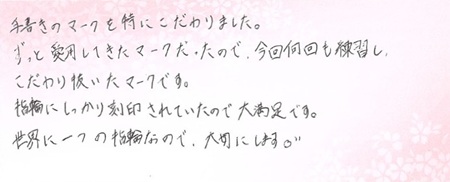 手書きのマークを特にこだわりました。
ずっと愛用してきたマークだったので、今回何回も練習し、
こだわり抜いたマークです。
指輪にしっかり刻印されていたので大満足です。
世界に一つの指輪なので、大切にします。